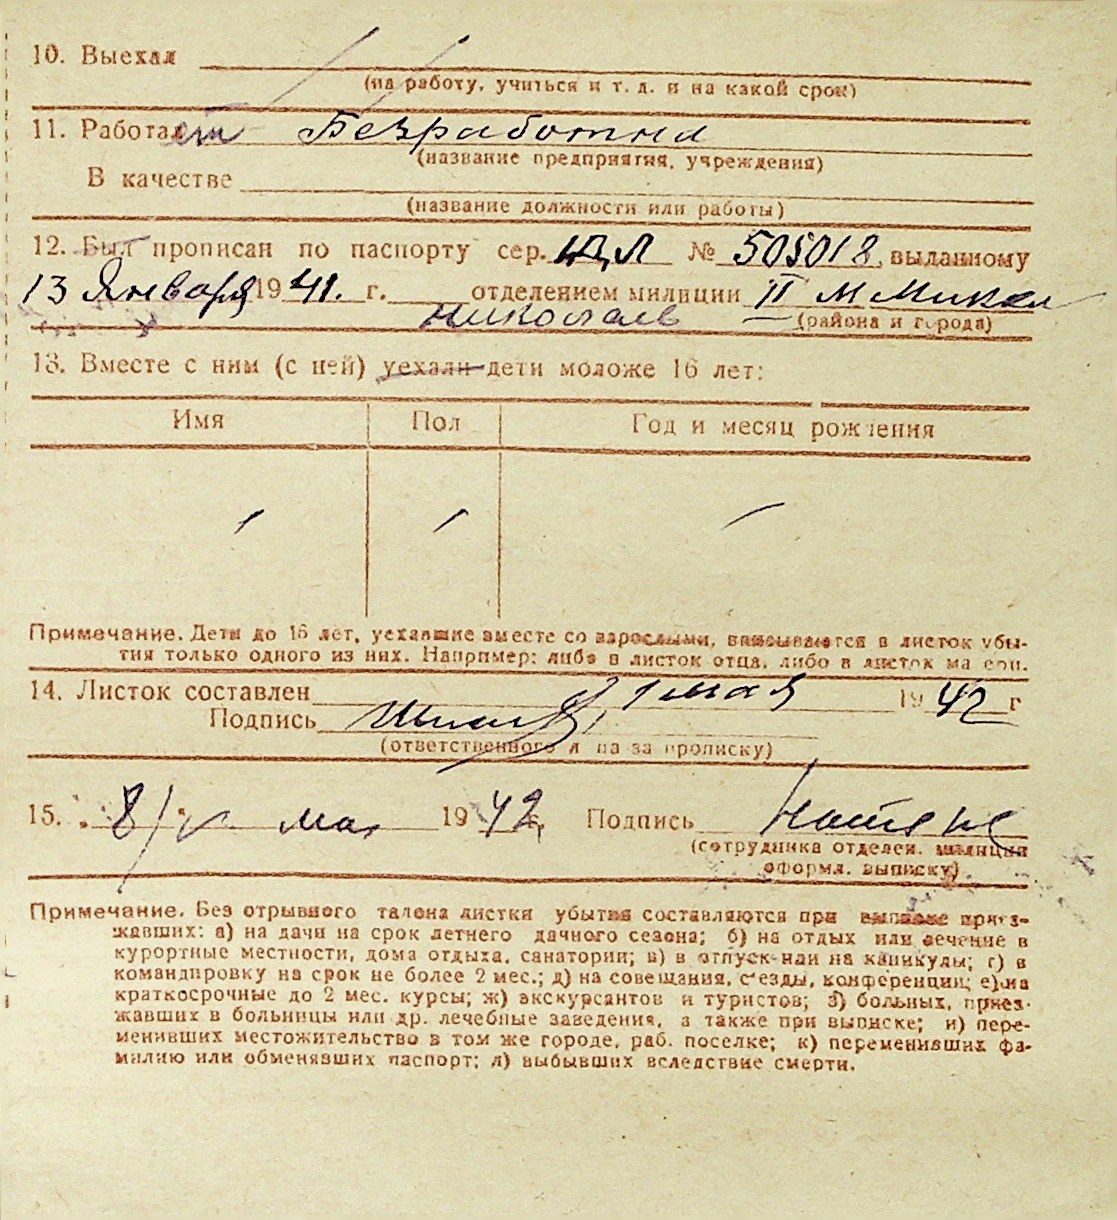 10. Выехал
(на работу, учиться и т. д. и на какой срок)
11. Работает Безработная
(название предприятия, учреждения)
В качестве
(название должности или работы)
12. Был прописан по паспорту сер. № 505018 выданному
13 Января 1941. г. отделением милиции II
Николаев (района и города)
13. Вместе с ним (с ней) уехали дети моложе 16 лет:
Имя Пол Год и месяц рождения
Примечание. Дети до 16 лет, уехавшие вместе со взрослыми, вписываются в листок убы-
тия только одного из них. Например: либо в листок отца, либо в листок ма ери.
14. Листок составлен 1 мая 1942 г
Подпись
(ответственного л ца за прописку)
15. 8/V мая 1942 Подпись
(сотрудника отделен. милиции
оформл. выписку)
Примечание. Без отрывного талона листки убытия составляются при выписке приез-
жавших: а) на дачи на срок летнего дачного сезона; б) на отдых или лечение в
курортные местности, дома отдыха, санатории; в) в отпуск или на каникулы; г) в
командировку на срок не более 2 мес.; д) на совещания, с'езды, конференции; е) на
краткосрочные до 2 мес. курсы; ж) экскурсантов и туристов; з) больных, приез-
жавших в больницы или др. лечебные заведения, а также при выписке; и) пере-
менивших местожительство в том же городе, раб. поселке; к) переменивших фа-
милию или обменявших паспорт; л) выбывших вследствие смерти.